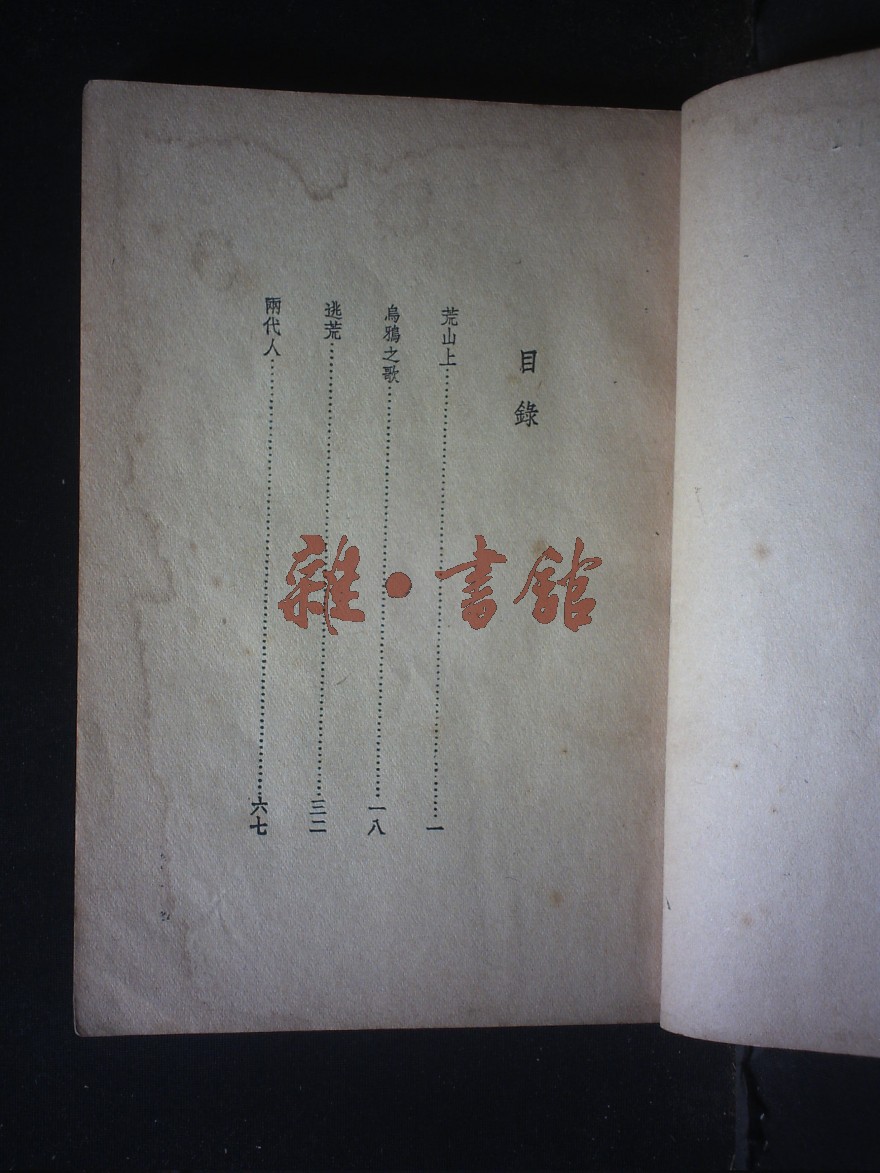 目錄
荒山上…………………………一
烏鴉之歌…………………………一八
逃荒…………………………三二
兩代人…………………………六七
雜·書館